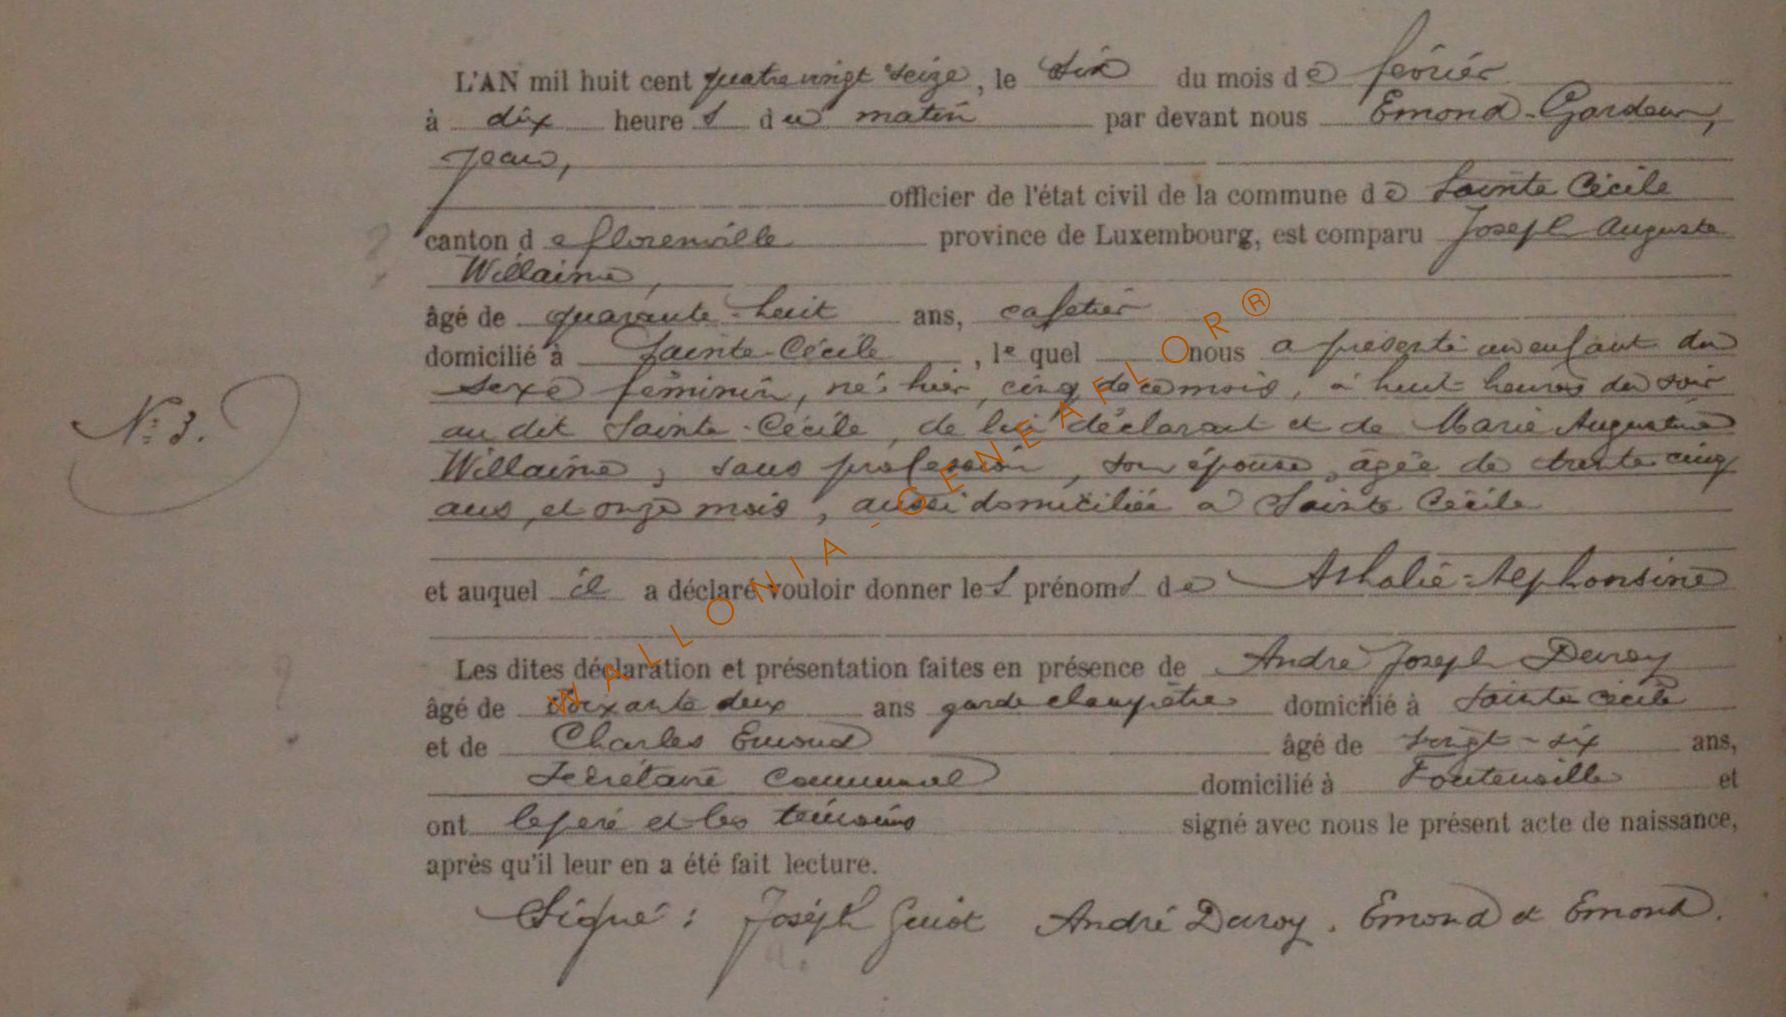 L'AN mil huit cent quatre vingt seize, le six du mois de février
à dix heures du matin par devant nous Emond-Gardeur,
Jean,
officier de l'état civil de la commune de Sainte Cécile
canton de florenville province de Luxembourg, est comparu Joseph Auguste
Willaime,
âgé de quarante-huit ans, cafetier
domicilié à Sainte-Cécile, lequel nous a présenté un enfant du
sexe féminin, né hier, cinq de ce mois, à huit heures du soir
au dit Sainte-Cécile, de lui déclarant et de Marie Augustine
Willaime, sans profession, son épouse, âgée de trente cinq
ans, et onze mois, aussi domiciliée à Sainte Cécile
et auquel il a déclaré vouloir donner les prénoms de Athalie-Alphonsine
Les dites déclaration et présentation faites en présence de André Joseph Duroy
âgé de soixante deux ans garde champêtre domicilié à Sainte Cécile
N° 3.
et de Charles Emond âgé de vingt-six ans,
Secrétaire communal domicilié à Fontenoille et
ont le père et les témoins signé avec nous le présent acte de naissance,
après qu'il leur en a été fait lecture.
Signé: Joseph Guiot André Duroy. Emond et Emond.
WALLONIA-GENEAFLOR®